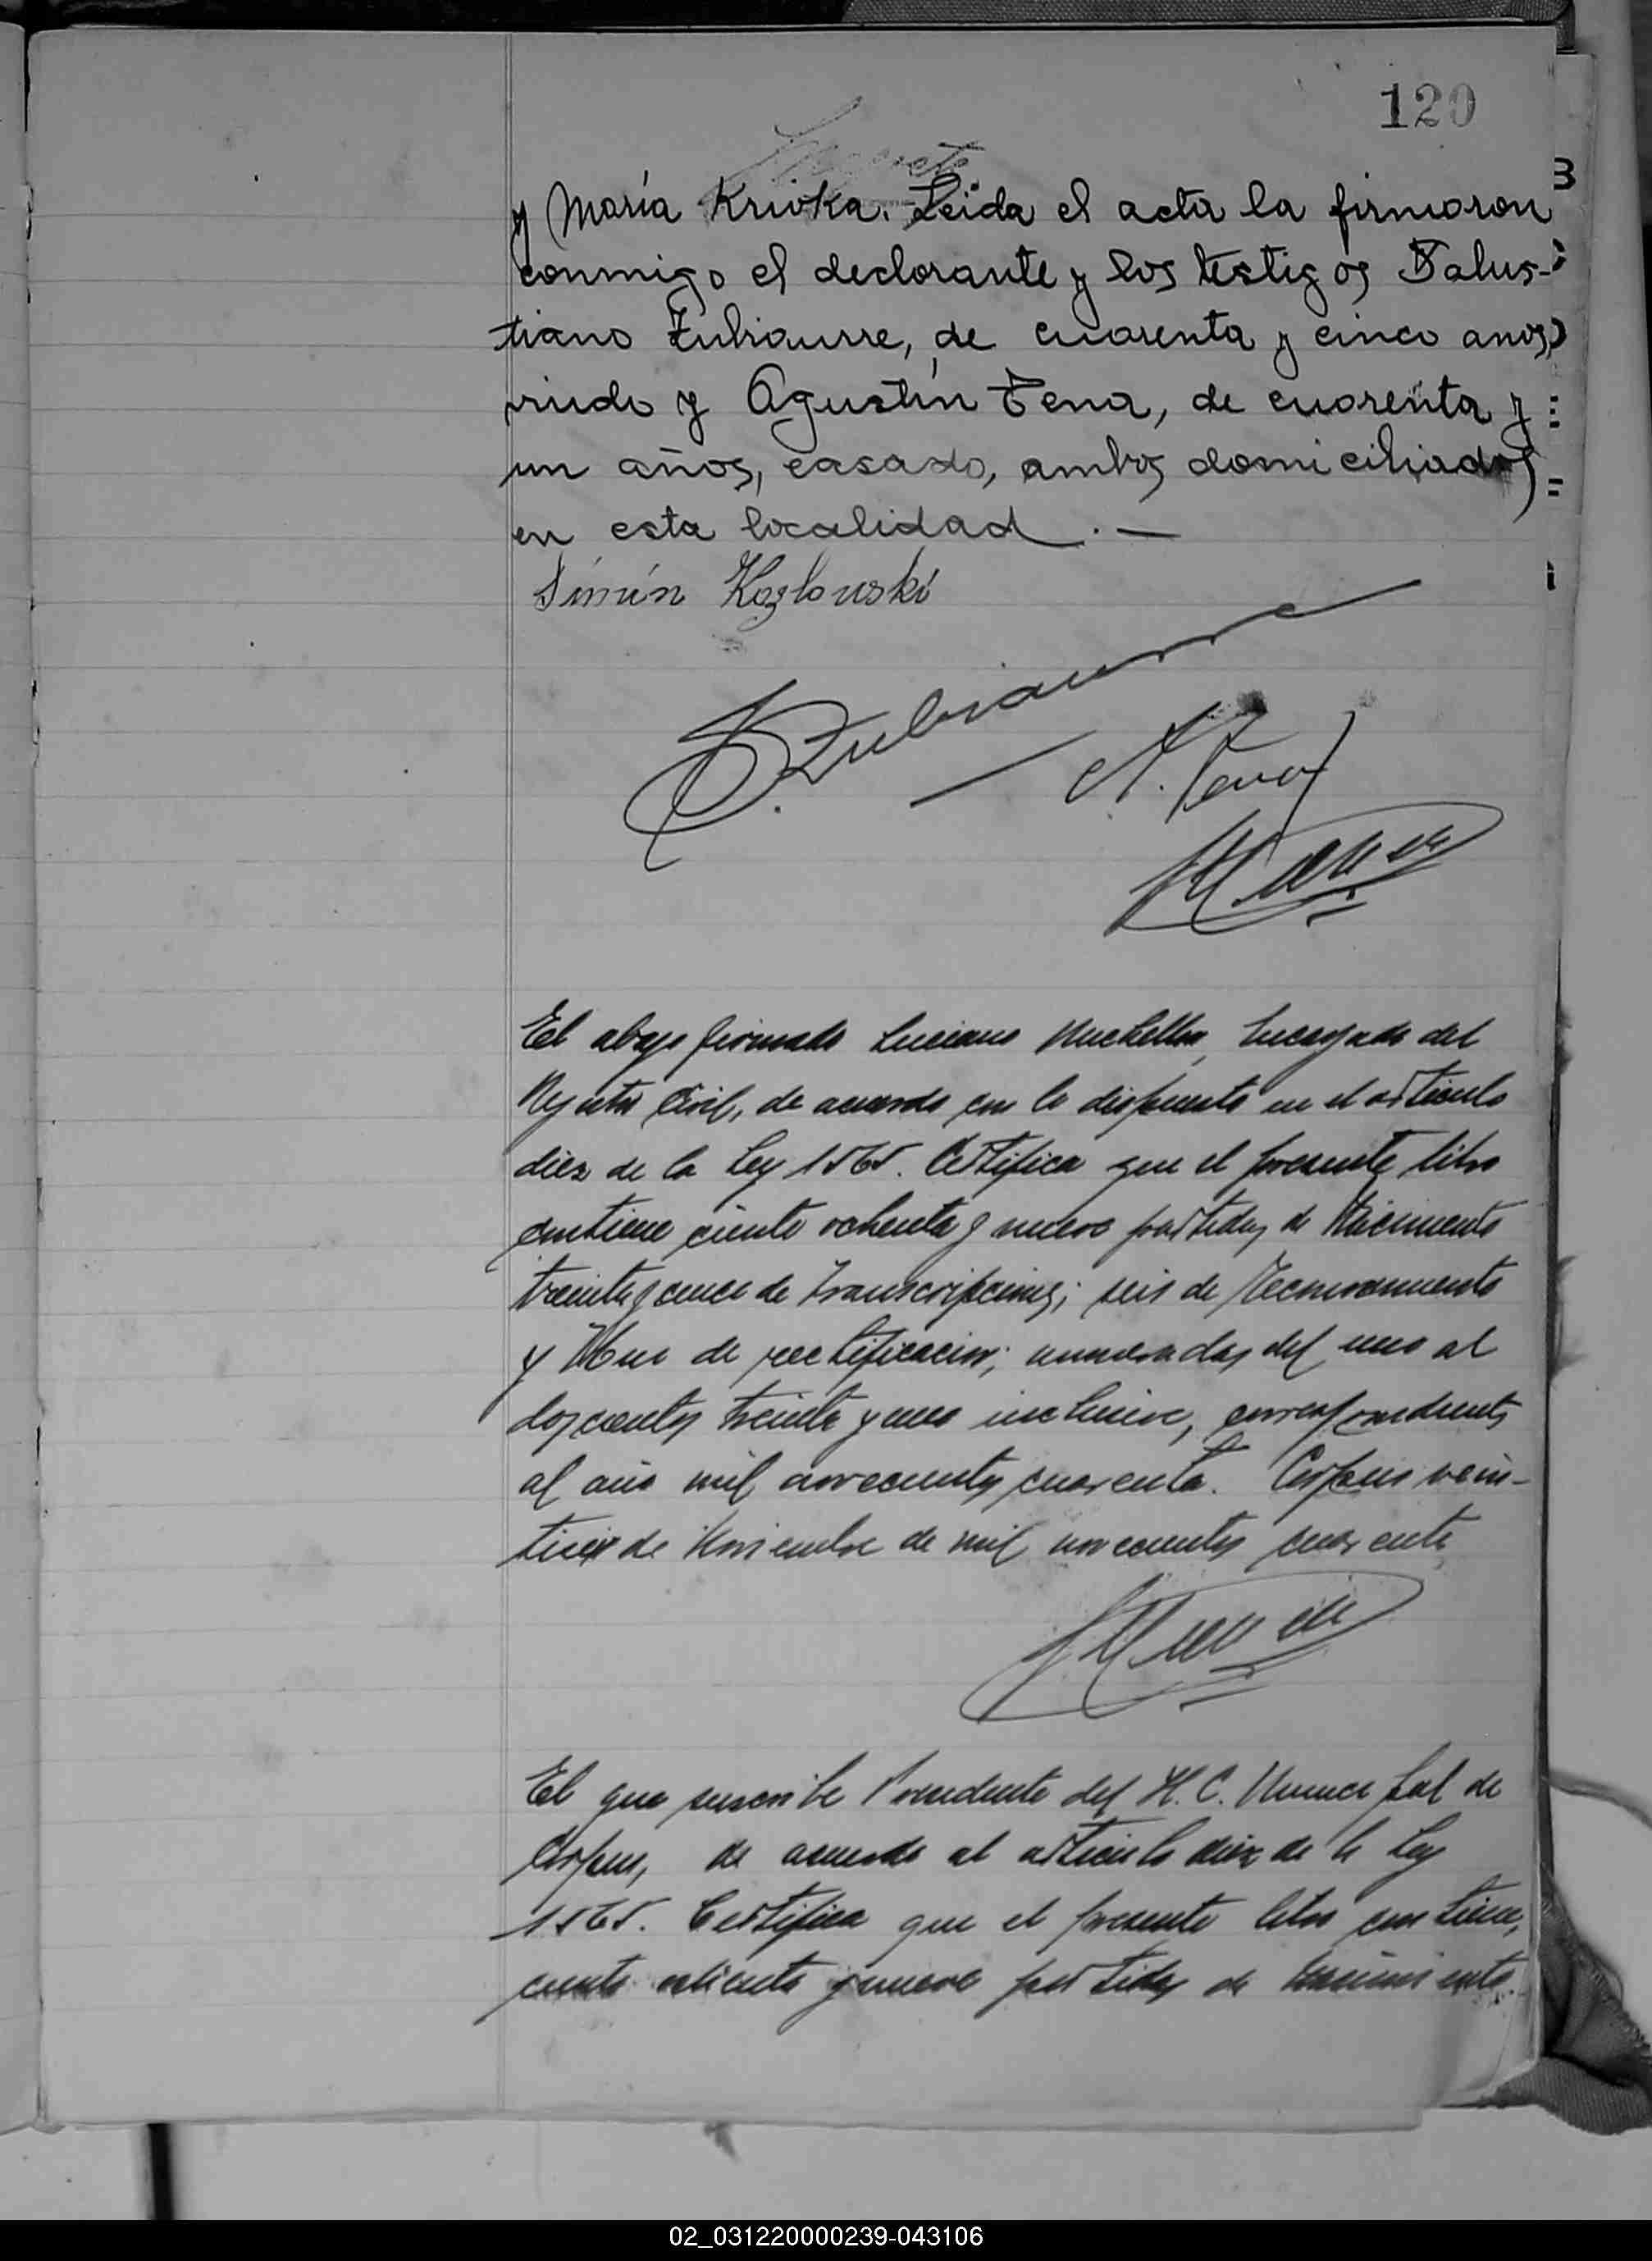 120
y María Krivka. Leida el acta la firmaron
conmigo el declarante y los testigos Salus-
tiano Zubiaurre, de cuarenta y cinco anos,
viudo y Agustín Tena, de cuarenta y
un años, casado, ambos domiciliados
en esta localidad . —
Simón Kozlowski
S. Zubiaurre
A. Tena
El abajo firmado Luciano Encargado del
Registro Civil, de acuerdo con lo dispuesto en el articulo
diez de la Ley 1565. Certifica que el presente libro
contiene ciento ochenta y nueve partidas de Nacimiento
treinta y cinco de Transcripciones; seis de Reconocimiento
y Una de rectificacion; numeradas del uno al
doscientos treinta y uno inclusive, correspondientes
al año mil novecientos cuarenta. Corpus vein-
de Noviembre de mil novecientos cuarenta
El que suscribe Presidente del H. C. Municipal de
Corpus, de acuerdo al articulo diez de la Ley
1565. Certifica que el presente libro contiene,
ciento ochenta y nueve partidas de nacimiento
02_031220000239-043106